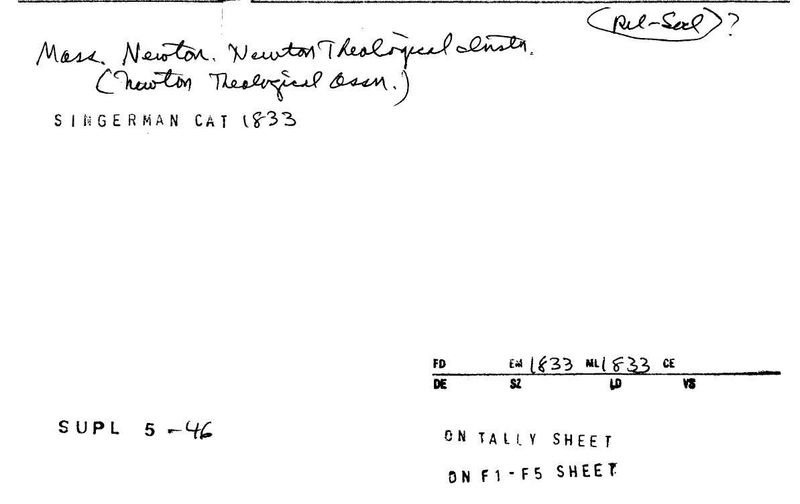 (Rel-Socl)?
Mass. Newton. Newton Theological Instn.
(Newton Theological Assn.)
SINGERMAN CAT 1833
FD EM 1833 ML 1833 CE
DE SZ LD VS
SUPL 5-46
ON TALLY SHEET
ON F1-F5 SHEET